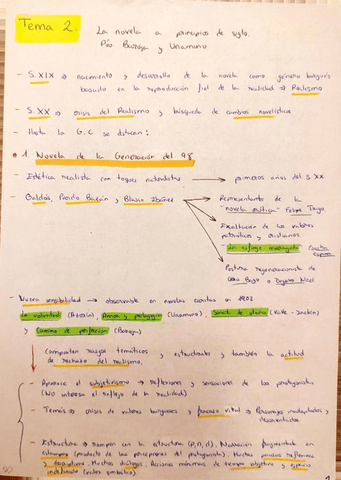 Tema 2.
La novela a principios de siglo.
Pío Baroja y Unamuno
- S. XIX → nacimiento y desarrollo de la novela como género burgués
basado en la reproducción fiel de la realidad → Realismo
- S. XX → crisis del Realismo y búsqueda de cambios novelísticos
- Hasta la G.C se destacan:
1 Novela de la Generación del 98
- Estética realista con toques
primeros años del S XX
- Galdós, Pardo Bazán y Blasco Ibáñez
Representante de la
"novela" Felipe Trigo
Exaltación de los valores
patrióticos y cristianos
Postura regeneracionista de
Ciro Bayo y Eugenio Noel
- Nueva sensibilidad → observable en novelas escritas en 1902
La voluntad (Azorín), Amor y pedagogía (Unamuno), Sonata de otoño (Valle-Inclán)
y Camino de perfección (Baroja)
Comparten rasgos temáticos y estructurales y también la actitud
de rechazo del realismo.
- Aparece el subjetivismo → reflexiones y sensaciones de los protagonistas
(No interesa el reflejo de la realidad)
- Temas → crisis de valores burgueses y vital → Personajes inadaptados y
desorientados
- Estructura → rompen con la estructura (p, n, d). Narración fragmentada en
estampas (producto de las percepciones del protagonista). Muchos
y Muchos diálogos. Acciones mínimas de tiempo objetivo y espacio
(valor simbólico)